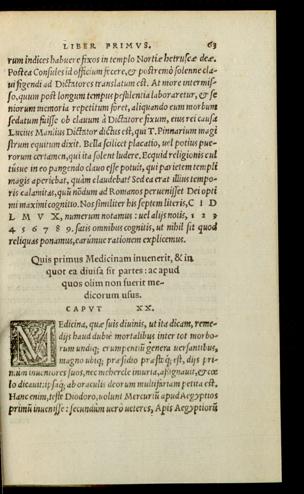 LIBER PRIMVS. 63
rum indices habuere fixos in templo Nortiæ hetruscæ deæ.
Postea Consules id officium fecere, & postremò solenne cla-
ui figendi ad Dictatores translatum est. At more intermis-
so, quum post longum tempus pestilentia laboraretur, & se
niorum memoria repetitum foret, aliquando eum morbum
sedatum fuisse ob clauum à Dictatore fixum, eius rei causa
Lucius Manlius Dictator dictus est, qui T. Pinnarium magi
strum equitum dixit. Bella scilicet placatio, uel potius pue-
rorum certamen, qui ita solent ludere. Ecquid religionis cul
tusue in eo pangendo clauo esse potuit, qui parietem templi
magis aperiebat, quàm claudebat? Sed ea erat illius tempo-
ris calamitas, quũ nõdum ad Romanos peruenisset Dei opti
mi maximi cognitio. Nos similiter his septem literis, C I D
L M V X, numerum notamus: uel alijs notis, 1 2 3
4 5 6 7 8 9. satis omnibus cognitis, ut nihil sit quod
reliquas ponamus, earúmue rationem explicemus.
Quis primus Medicinam inuenerit, & in
quot ea diuisa sit partes: ac apud
quos olim non fuerit me-
dicorum usus.
CAPVT XX.
MEdicina, quæ suis diuinis, ut ita dicam, reme-
dijs haud dubiè mortalibus inter tot morbo-
rum undiq; erumpentiũ genera uersantibus,
magno ubiq; præsidio præstò est, dijs pri-
mũm inuentores suos, nec mehercle iniuria, assignauit, & cœ
lo dicauit: ipsaq; ab oraculis deorum multifariam petita est.
Hanc enim, teste Diodoro, uolunt Mercuriũ apud Aegyptios
primũ inuenisse: secundùm uerò ueteres, Apis Aegyptiorũ